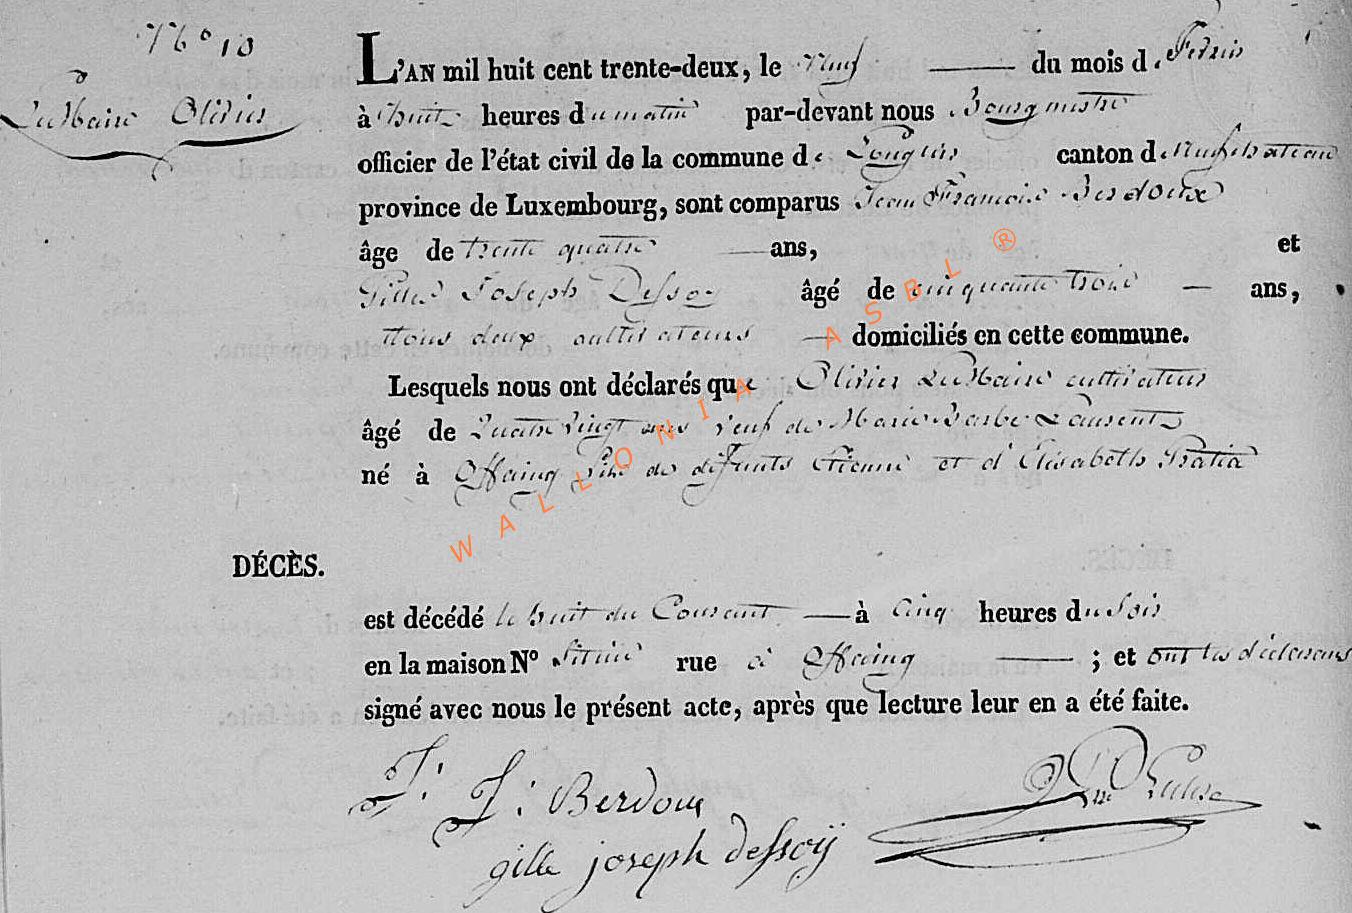 N° 10
Olivier
L'AN mil huit cent trente-deux, le Neuf du mois de Février
à huit heures du matin par-devant nous Bourgmestre
officier de l'état civil de la commune de Longlier canton de Neufchateau
province de Luxembourg, sont comparus Jean François Berdoux
âge de trente quatre ans, et
Gilles Joseph Dessoy âgé de cinquante trois ans,
tous deux cultivateurs domiciliés en cette commune.
Lesquels nous ont déclarés que Olivier cultivateur
âgé de Quatre vingt ans veuf de Marie Barbe Laurent
né à Offaing fils de défunts Etienne et d'Elisabeth
DÉCÈS.
est décédé le huit du Courant à Cinq heures du Soir
en la maison N° Située rue à Offaing ; et ont les déclarans
signé avec nous le présent acte, après que lecture leur en a été faite.
J: F: Berdoux
gille joseph dessoij
WALLONIA ASBL ®